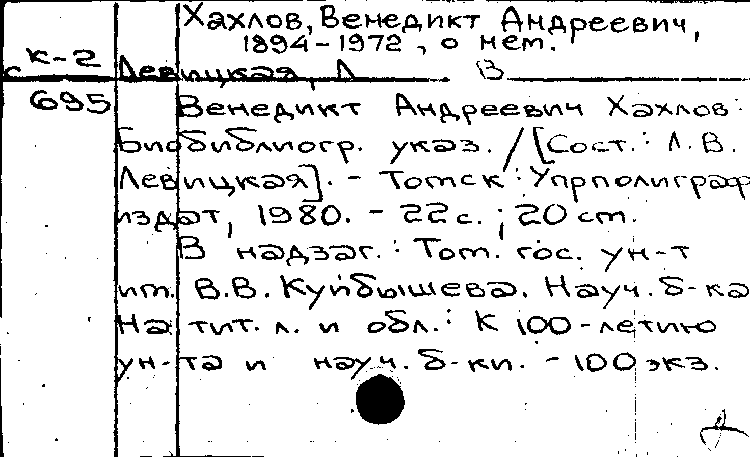 Хахлов, Венедикт Андреевич,
1894-1972, о нем.
К-2
с
Левицкая, Л В
695
Венедикт Андреевич Хахлов:
Биобиблиогр. указ. / [Сост.: Л.В.
Левицкая]. - Томск: Упрполиграф
издат, 1980. - 22 с.; 20 см.
В надзаг.: Том. гос. ун-т
им. В.В. Куйбышева. Науч. б-ка
На тит. л. и обл.: К 100-летию
ун-та и науч. б-ки. - 100 экз.